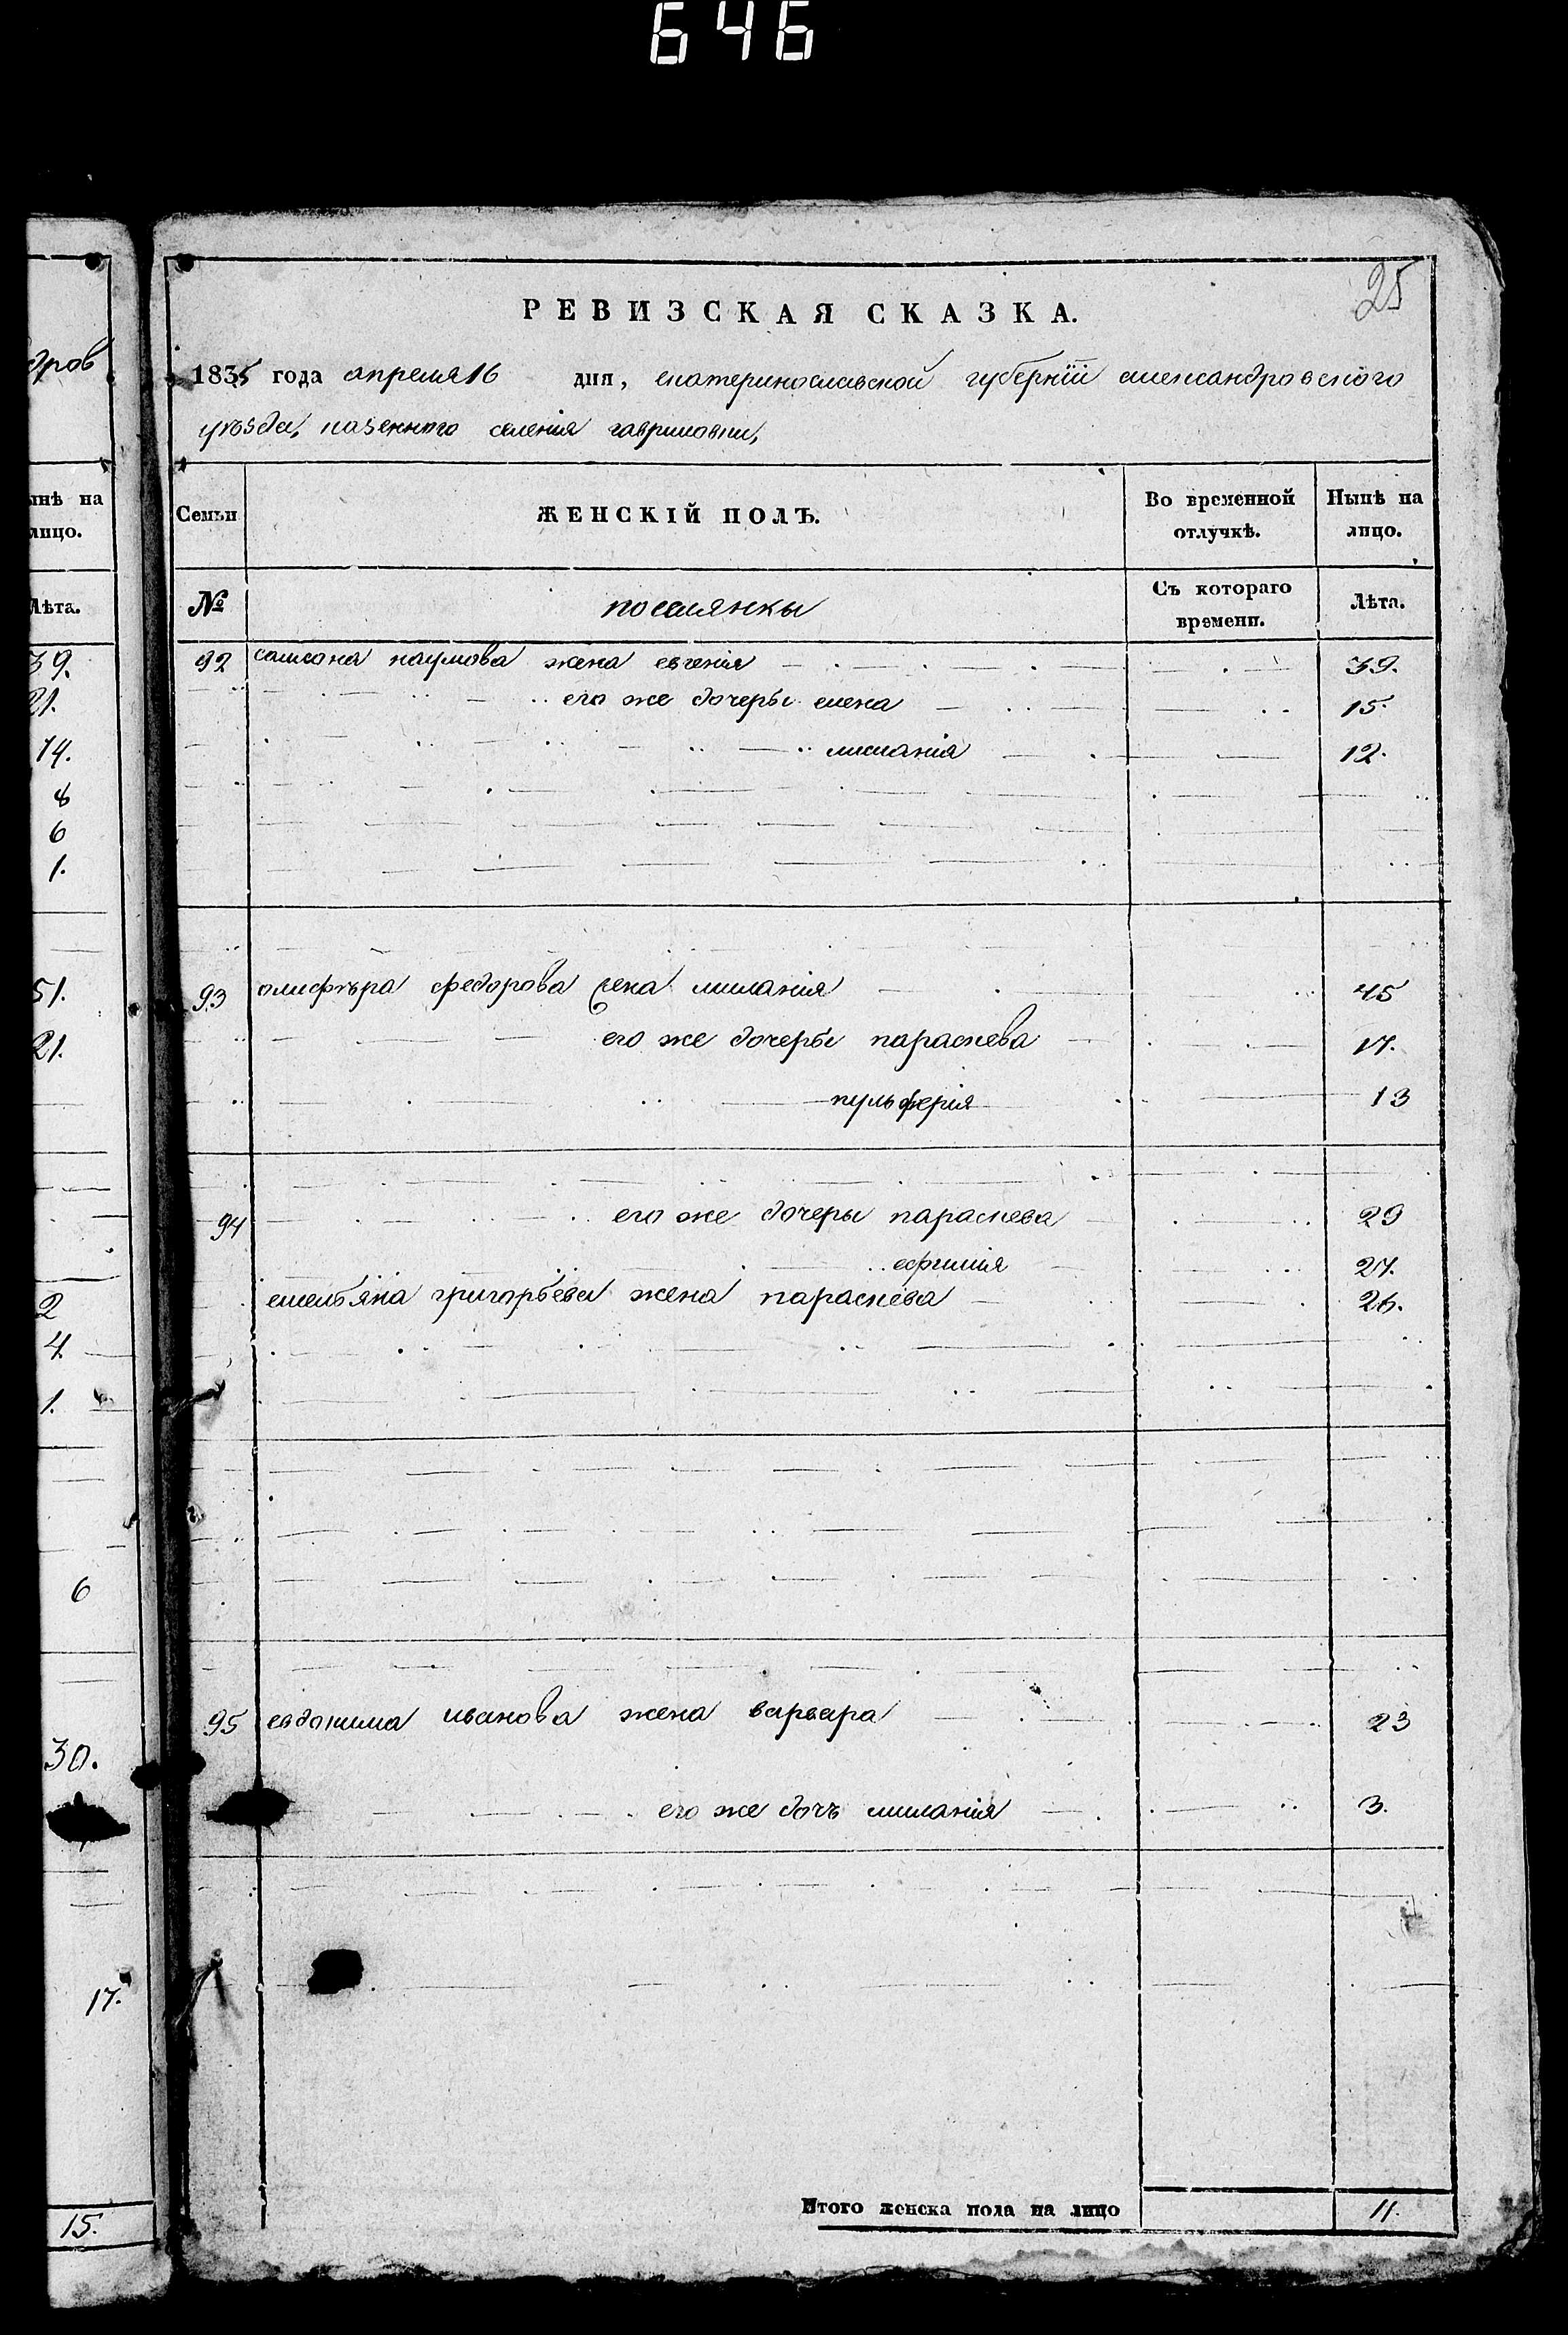 646
дров
ынѣ на
лицо.
Лѣта.
39.
21.
14.
8
6
1.
51.
21.
2
4.
1.
6
30.
17.
15.
25
РЕВИЗСКАЯ СКАЗКА.
1835 года апреля 16 дня, екатеринославской губернїи александровского
уѣзда, казенного селенія гавриловки,
Семьи ЖЕНСКІЙ ПОЛЪ. Во временной отлучкѣ. Нынѣ на лицо.
№ поселянкы Съ котораго времени. Лѣта.
92 самсона наумова жена евгенія 39.
его же дочеры елена 15.
миланія 12.
93 олифѣра федорова жена миланія 45
его же дочеры параскева 17.
пульферія 13
94 его же дочеры параскева 29
ефимия 27.
емельяна григорьева жена параскева 26.
95 евдокима иванова жена варвара 23
его же дочъ миланія 3.
Итого женска пола на лицо 11.